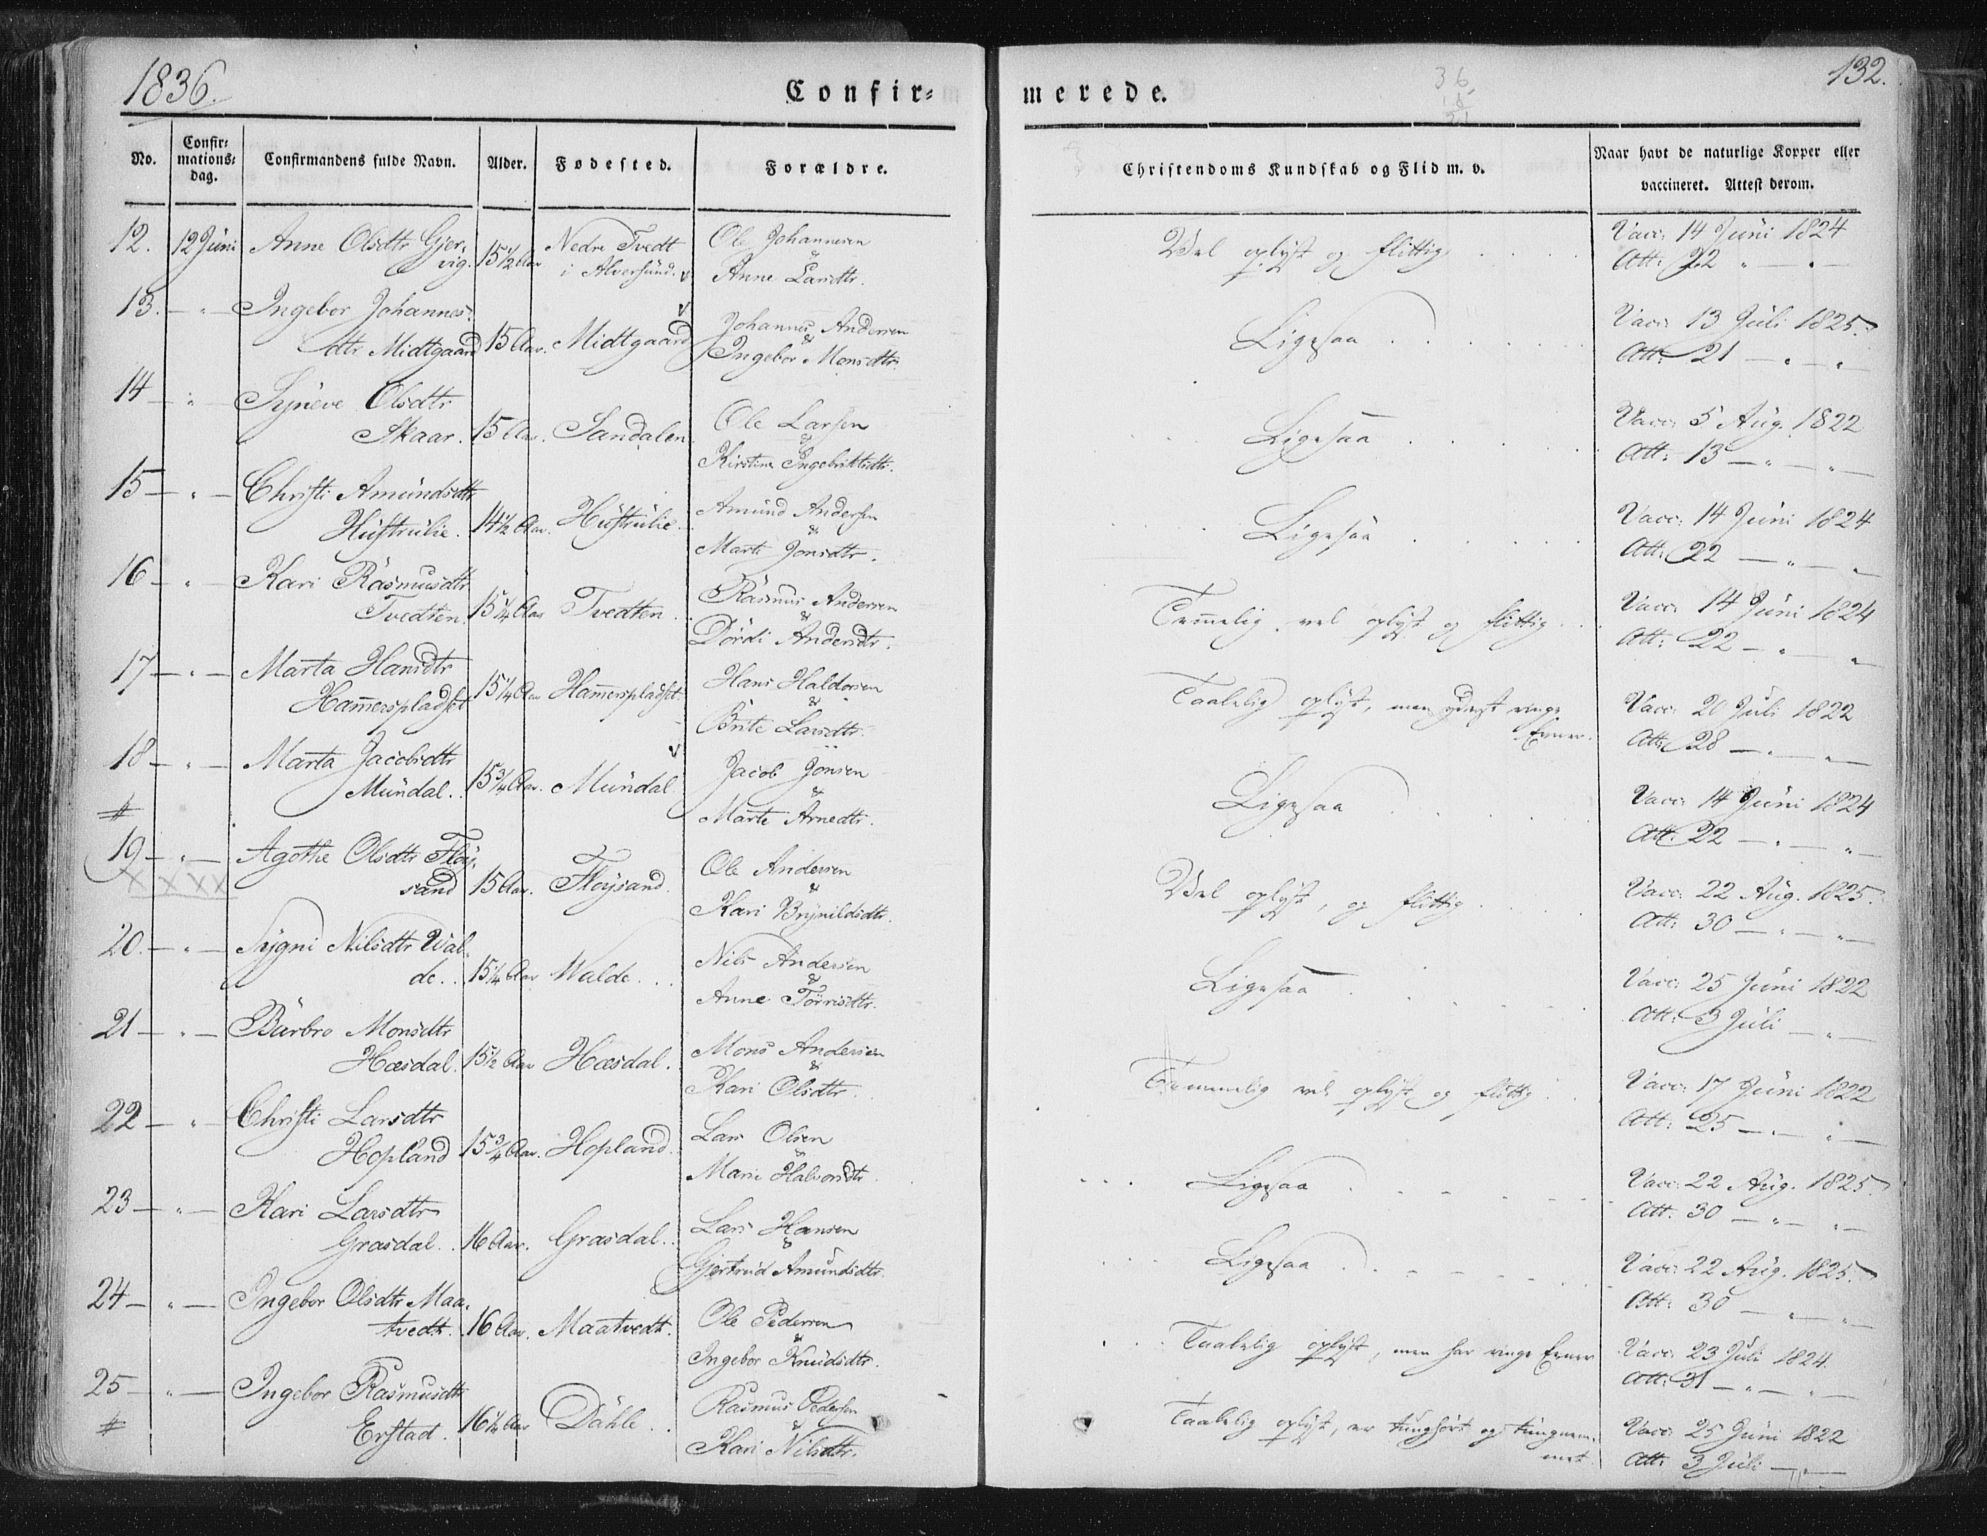 1836.
Confir=
merede.
36
132.
No.
Confir=
mations=
dag.
Confirmandens fulde Navn.
Alder.
Fødested.
Forældre.
Christendoms Kundskab og Flid m. v.
Naar havt de naturlige Kopper eller
vaccineret. Attest derom.
12. 12 Juni Anne Olsdtr Gjer-
vig. 15 1/2 Aar Nedre Tvedt
i Alversund. Ole Johannesen
&
Anne Larsdtr.
Vel oplyst og flittig
Vacc: 14 Juni 1824
Att: 22 " — " —
13. — " — Ingebor Johannes-
dtr Midtgaard 15 Aar. Midtgaard Johannes Andersen
&
Ingebor Monsdtr.
Ligesaa
Vacc: 13 Juli 1825.
Att: 21 — " — " —
14 — " — Synneve Olsdtr
Skaar. 15 Aar. Sandalen Ole Larsen
&
Kirstine Ingebrittsdtr.
Ligesaa
Vacc: 5 Aug. 1822
Att: 13 — " — " —
15 — " — Christi Amundsdtr
Hustrulie. 14 1/2 Aar. Hustrulie Amund Andersen
&
Marte Jonsdtr.
Ligesaa
Vacc: 14 Juni 1824
Att: 22 — " — " —
16 — " — Kari Rasmusdtr
Tvedten. 15 1/4 Aar Tvedten Rasmus Andersen
&
Dordi Andersdtr.
Temmelig vel oplyst og flittig
Vacc: 14 Juni 1824
Att: 22 — " — " —
17 — " — Marta Hansdtr
Hammerspladset 15 1/4 Aar Hammerspladset Hans Haldorsen
&
Brite Larsdtr.
Taalelig oplyst, men yderst ringe
Evner.
Vacc: 20 Juli 1822
Att: 28 — " — " —
18 — " — Marta Jacobsdtr
Mundal. 15 3/4 Aar. Mundal Jacob Jonsen
&
Marte Arnedtr.
Ligesaa
Vacc: 14 Juni 1824
Att: 22 — " — " —
#
19 — " — Agothe Olsdtr Fløy-
sand 15 Aar. Fløysand Ole Andersen
&
Kari Brynildsdtr.
Vel oplyst, og flittig
Vacc: 22 Aug. 1825.
Att: 30 — " — " —
x x x x
20. — " — Sygni Nilsdtr Wal-
de. 15 1/4 Aar Walde Nils Andersen
&
Anne Torrisdtr.
Ligesaa
Vacc: 25 Juni 1822
Att: 3 Juli — " —
21 — " — Barbro Monsdtr
Hæsdal. 15 1/2 Aar Hæsdal. Mons Andersen
&
Kari Olsdtr
Temmelig vel oplyst og flittig
Vacc: 17 Juni 1822
Att: 25 — " — " —
22 — " — Christi Larsdtr
Hopland 15 3/4 Aar. Hopland Lars Olsen
&
Mari Halvorsdtr
Ligesaa
Vacc: 22 Aug. 1825.
Att: 30 — " — " —
23 — " — Kari Larsdtr
Grasdal. 16 Aar. Grasdal. Lars Hansen
&
Gjertrud Amundsdtr.
Ligesaa
Vacc: 22 Aug. 1825.
Att: 30 — " — " —
24 — " — Ingebor Olsdtr Maa-
tvedt. 16 Aar. Maatvedt. Ole Pedersen
&
Ingebor Knudsdtr.
Taalelig oplyst, men har ringe Evner
Vacc: 23 Juli 1824.
Att: 31 — " — " —
25 — " — Ingebor Rasmusdtr
Erstad. 16 1/4 Aar Dahle Rasmus Pedersen
&
Kari Nilsdtr.
Taalelig oplyst, er tunghørt og tungnem-
met.
Vacc: 25 Juni 1822
Att: 3 Juli — " —
#